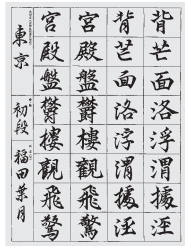 背芒面洛浮渭據涇
背芒面洛浮渭據涇
宮殿盤鬱樓觀飛驚
宮殿盤鬱樓觀飛驚
東京 初段 福田葉月